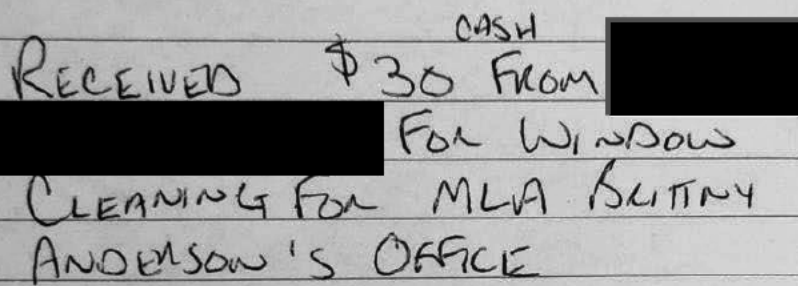 CASH
RECEIVED $30 FROM
FOR WINDOW
CLEANING FOR MLA BRITTNY
ANDERSON'S OFFICE